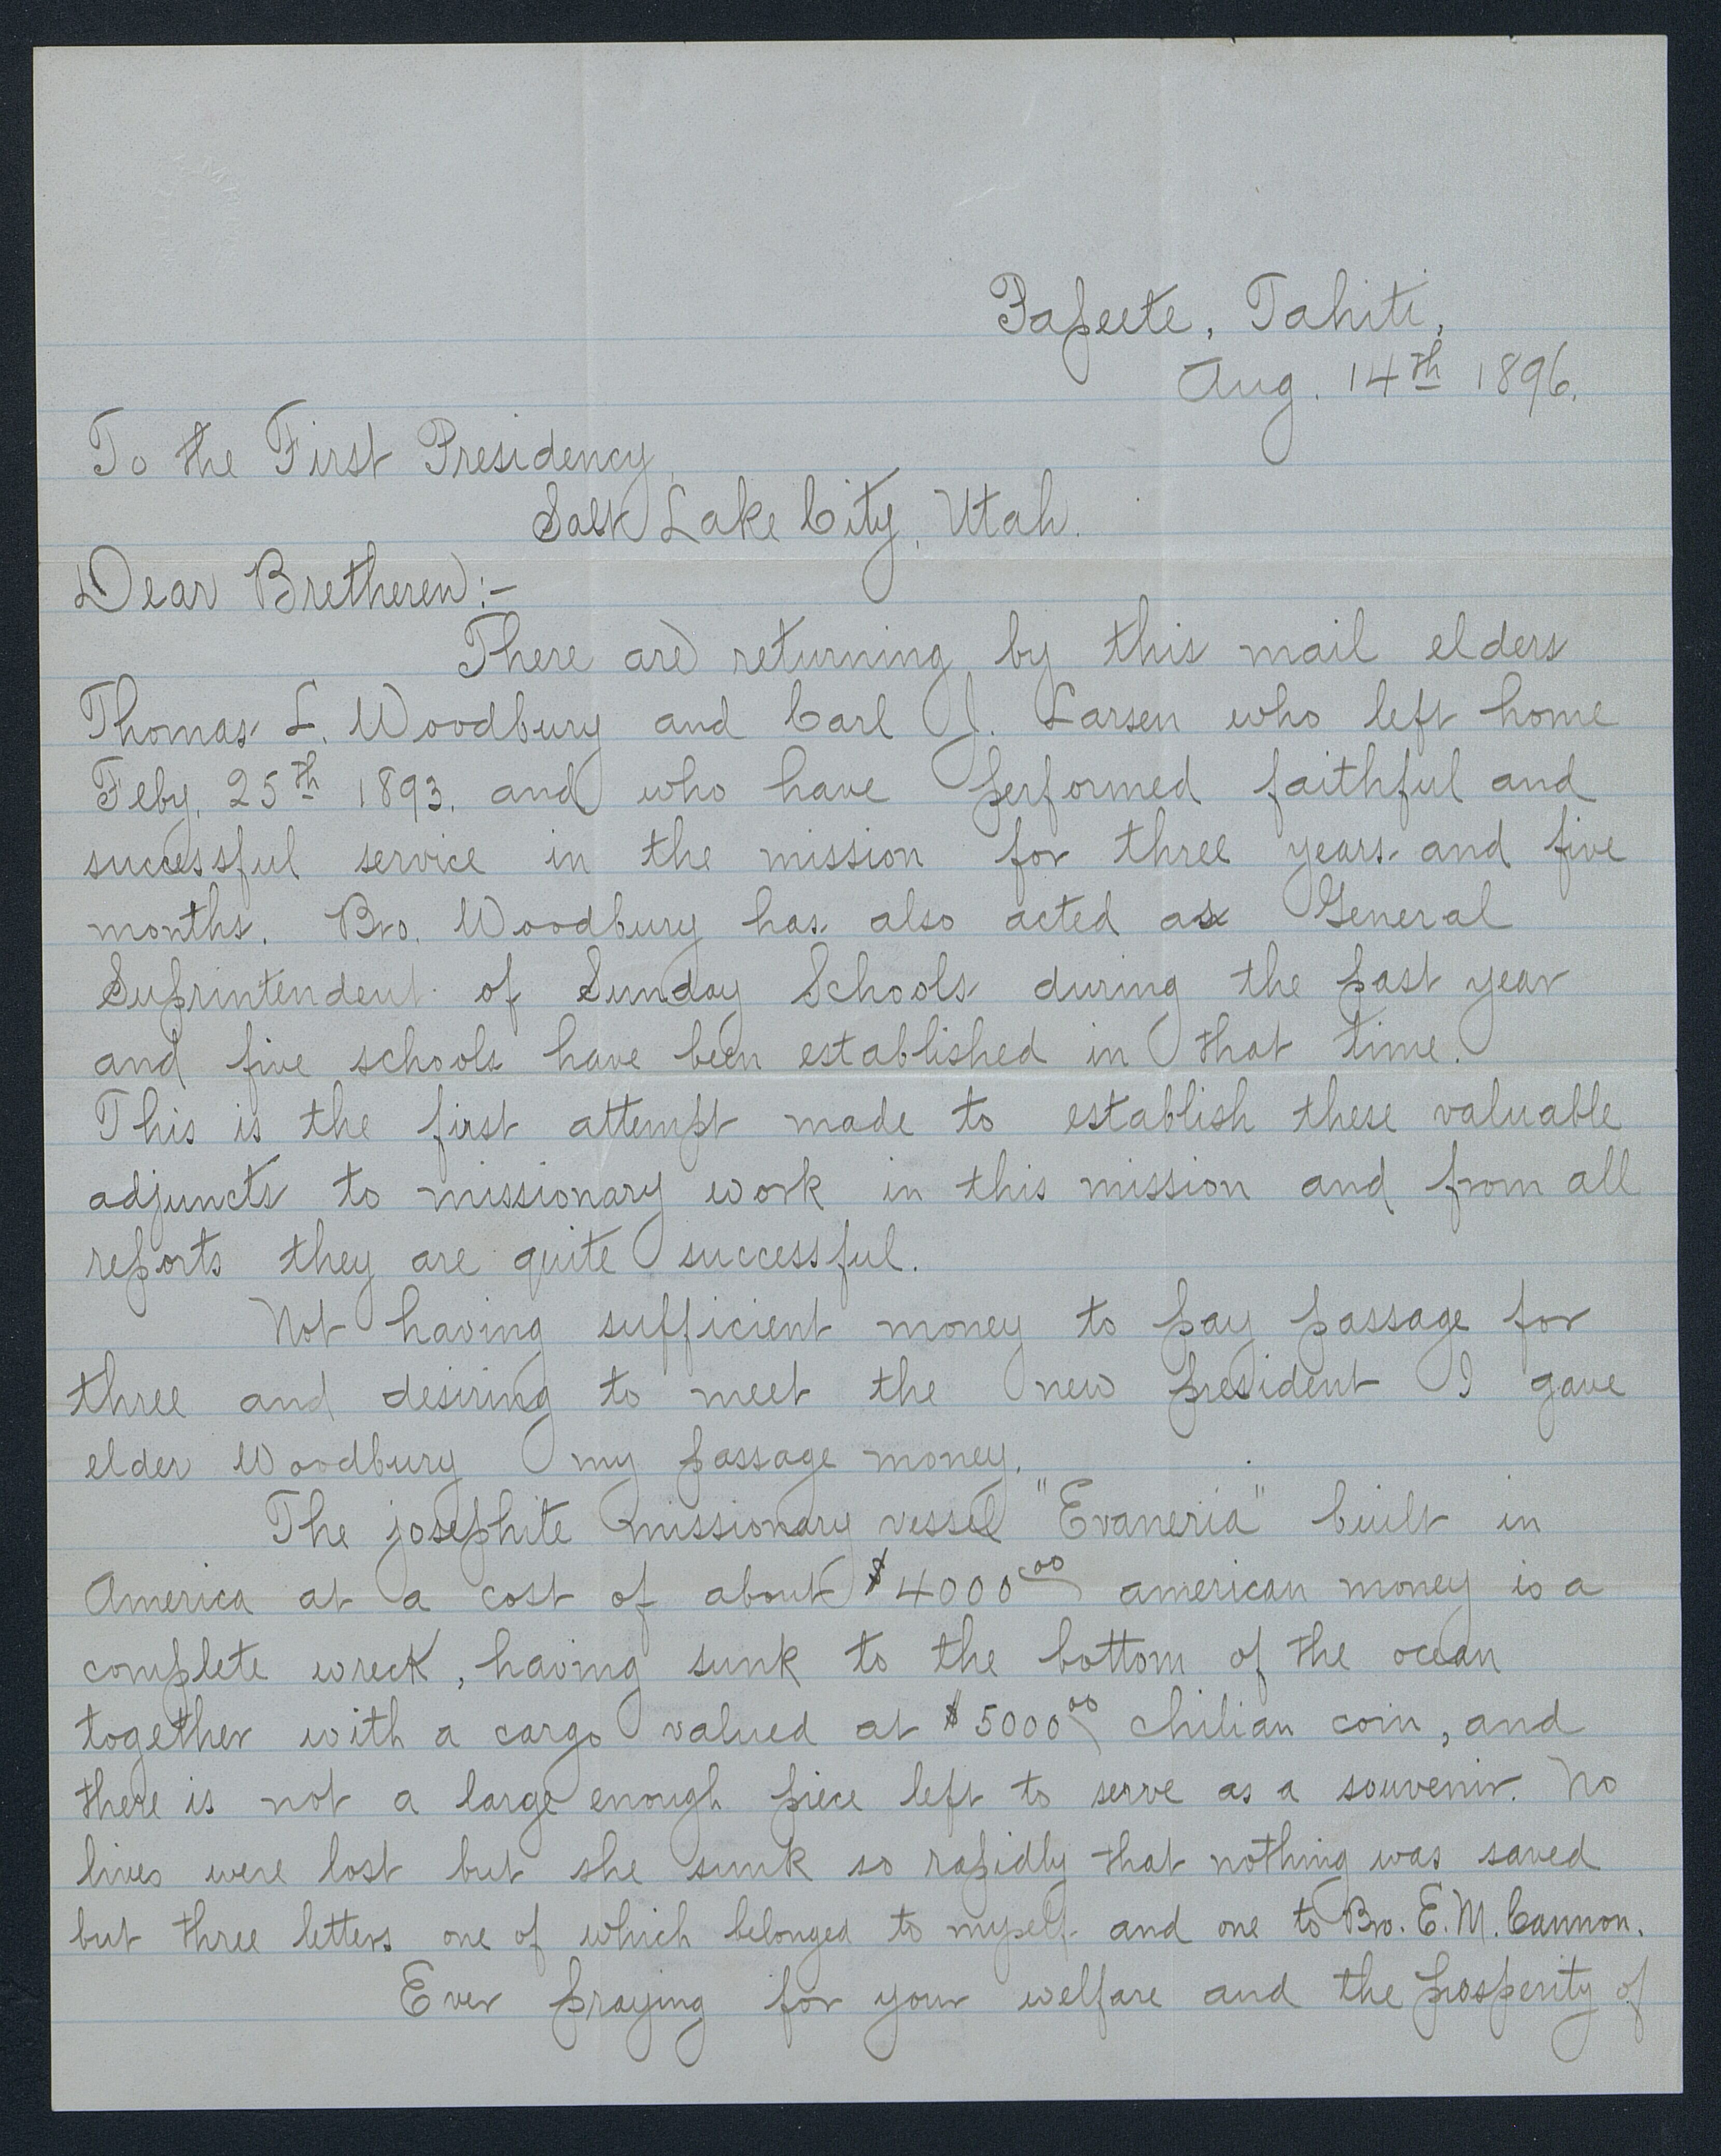 Papeete, Tahiti,
Aug. 14th 1896.
To the First Presidency,
Salt Lake City, Utah.
Dear Bretheren:-
There are returning by this mail elders
Thomas L. Woodbury and Carl J. Larsen who left home
Feby. 25th 1893. and who have performed faithful and
successful service in the mission for three years and five
months. Bro. Woodbury has also acted as General
Suprintendent of Sunday Schools during the past year
and five schools have been established in that time.
This is the first attempt made to establish these valuable
adjuncts to missionary work in this mission and from all
reports they are quite successful.
Not having sufficient money to pay passage for
three and desiring to meet the new president I gave
elder Woodbury my passage money.
The josephite missionary vessel "Evaneria" built in
America at a cost of about $4000.00 american money is a
complete wreck, having sunk to the bottom of the ocean
together with a cargo valued at $5000.00 chilian coin, and
there is not a large enough piece left to serve as a souvenir. No
lives were lost but she sunk so rapidly that nothing was saved
but three letters one of which belonged to myself and one to Bro. E. M. Cannon.
Ever praying for your welfare and the prosperity of